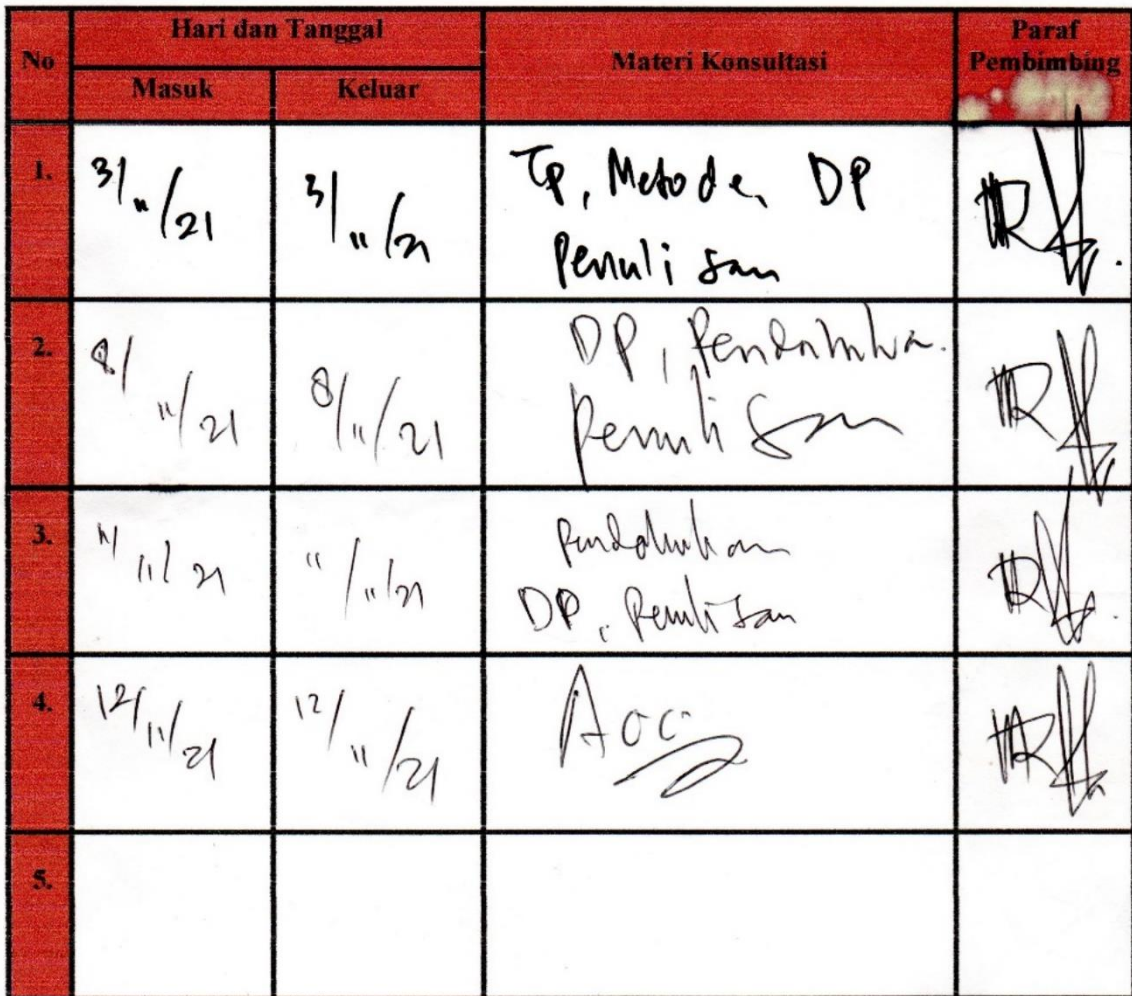 No
Hari dan Tanggal
Materi Konsultasi
Paraf Pembimbing
Masuk
Keluar
1.
3/11/21
3/11/21
TP, Metode, DP
Penulisan
2.
8/11/21
8/11/21
DP, Pendahulua.
Penulisan
3.
11/11/21
11/11/21
Pendahuluan
DP, Penulisan
4.
12/11/21
12/11/21
Acc
5.